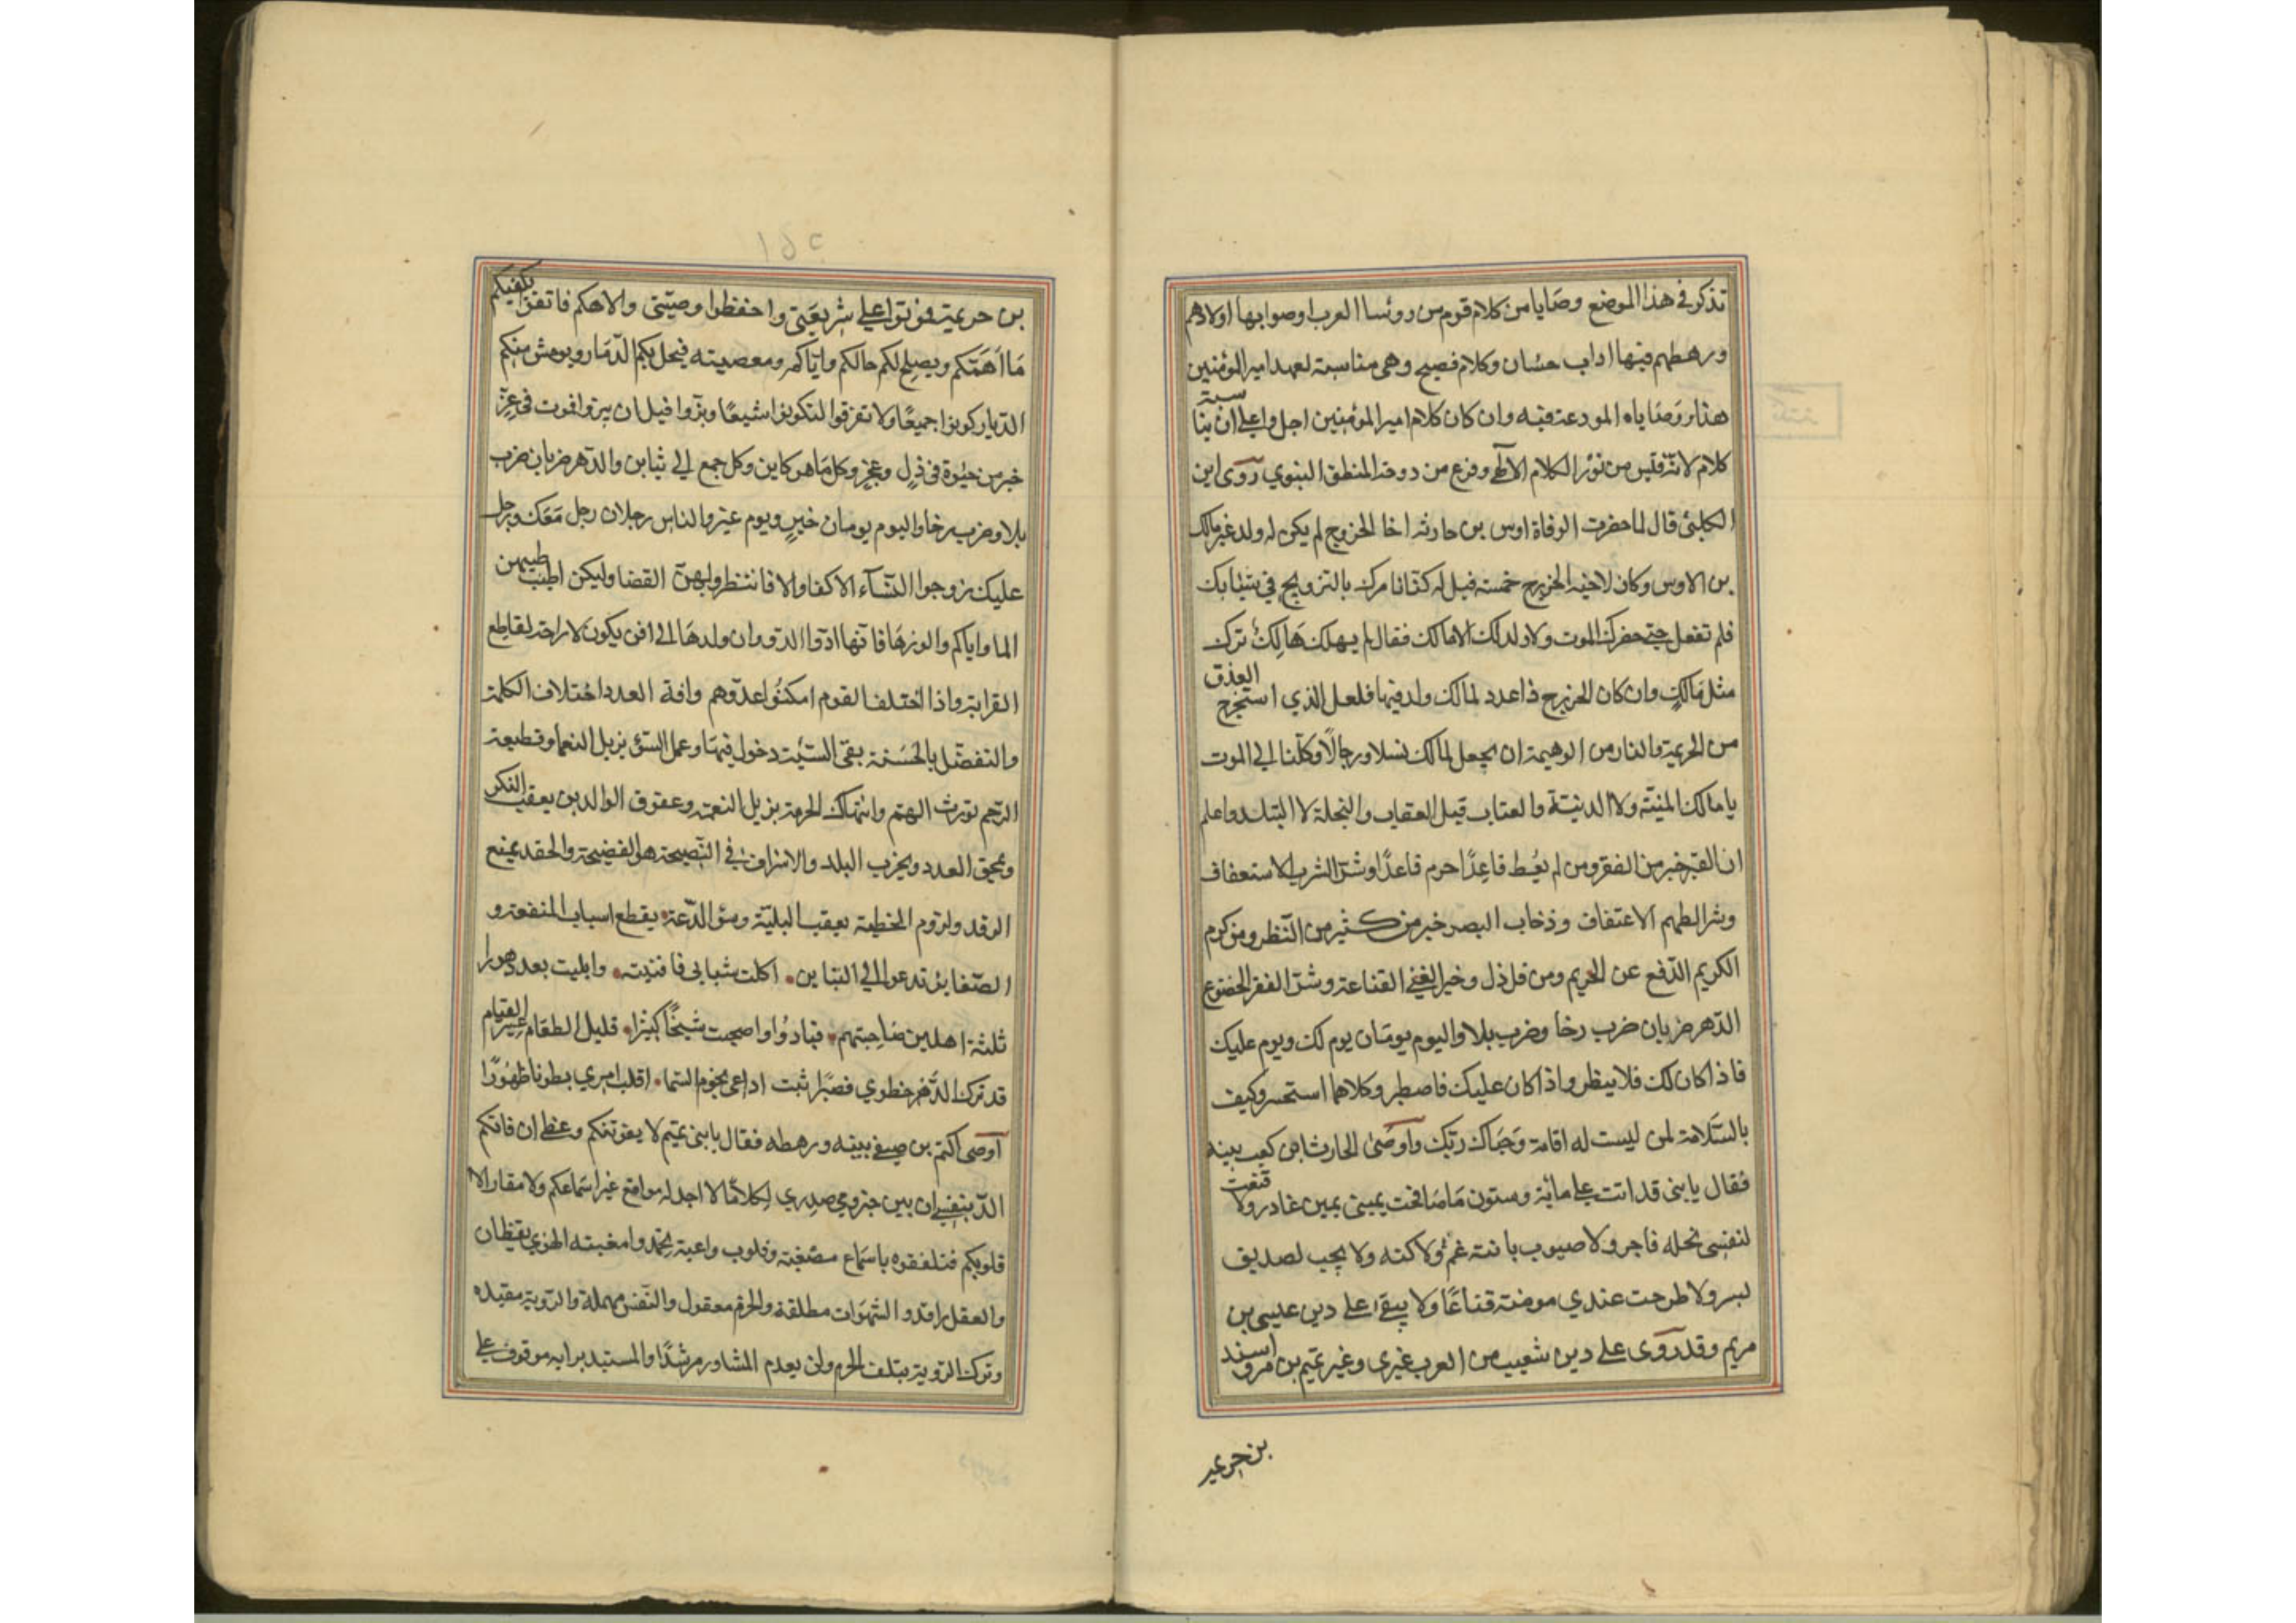 تذكر في هذا الموضع وصايا من كلام قوم من روئسا العرب اوصوا بها اولادهم
ورهطهم فيها اداب حسان وكلام فصيح وهى مناسبة لعهد امير المؤمنين
هذا ووصاياه المودعة فيه وان كان كلام امير المؤمنين اجل واعلى ان يناسبه
كلام لانه قبس من نور الكلام الالهي وفرع من دوحة المنطق النبوي روى ابن
الكلبى قال لما حضرت الوفاة اوس بن حارثه اخا الخزرج لم يكن له ولد غير مالك
بن الاوس وكان لاخيه الخزرج خمسة فيل له كنا نامرك بالتزويج في شبابك
فلم تفعل حتى حضرك الموت ولا ولد لك الا مالك فقال لم يهلك هالك ترك
مثل مالك وان كان الخزرج ذا عدد لمالك ولد فيها فلعل الذي استخرج العذق
من الجريمة والنار من الوهيمة ان يجعل لمالك نسلا ورجالا وكلنا الى الموت
يا مالك المنية ولا الدنية والعتاب قبل العقاب والتجلد لا التبلد واعلم
ان القبر خير من الفقر ومن لم يعط قاعدا حرم قاعدا وشر الشرب الاستعفاف
وشر الطهم الاعتفاف وذخاب البصر خير من كثير من النظر ومن كرم
الكريم الدفع عن الحريم ومن قل ذل وخير الغنى القناعة وشر الفقر الخضوع
الدهر ضربان ضرب رخا وضرب بلا واليوم يومان يوم لك ويوم عليك
فاذا كان لك فلا يبظر واذا كان عليك فاصطبر وكلاهما استحسر وكيف
بالسلامة لمن ليست له اقامة وحياك ربك واوصى الحارث ابن كعب بينه
فقال يا بنى قد اتت على مائة وستون ما صافحت يمينى يمين غادر ولا قنعت
لنفسى بخله فاجر ولا صبوب بابنة عم ولا كنه ولا يجب لصديق
بسر ولا طرحت عندي مومسة قناعًا ولا يبقى على دين عيسى بن
مريم وقد روى على دين شعيب من العرب غيرى وغير تميم بن مر واسند
بن خريمة
١٥٢
بن خريمة فموتوا على شريعتى واحفظوا وصيتى والاهكم فاتقوا يكفيكم
ما اهمتكم ويصلح لكم حالكم واياكم ومعصيته فيحل بكم الدمار ويوحش منكم
الديار كونوا جميعًا ولا تفرقوا فتكونوا شيعًا وبزوا قبل ان يبزوا فموت في عز
خير من حيوة في ذل وعجز وكل ما هو كاين وكل جمع الى تباين والدهر ضربان ضرب
بلا وضرب رخا واليوم يومان خير ويوم عبر والناس رجلان رجل معك ورجل
عليك زوجوا النسآء الاكفا والا فانتظروا بهن القضا وليكن اطيب طيبهن
الما واياكم والورها فانها ادوا الدوا وان ولدها الى افن يكون لا راحة لقاطع
القرابة واذا اختلف القوم امكنوا عدوهم وافة العدد اختلاف الكلمة
والتفضل بالحسنة يقى السيئة دخول فيها وعمل السوء يزيل النعما وقطيعة
الرحم تورث الهم وانتهاك الحرمة يزيل النعمة وعقوق الوالدين يعقب النكر
ويمحق العدد ويخرب البلد والاسراف في النصيحة هو الفضيحة والحقد يمنع
الرفد ولزوم الخطيئة يعقب البلية وسؤ الدعة يقطع اسباب المنفعة و
الضغاين تدعو الى التباين اكلت شبابى فافنيته وابليت بعد دهورا
ثلثة اهلين صاحبتهم فبادوا واصبحت شيخًا كبيرًا قليل الطعام عسير القيام
قد ترك الدهر خطوي قصيرًا ثبت اراعى نجوم السما اقلب امري بطونا ظهورًا
اوصى اكثم بن صيفى بنيه ورهطه فقال يا بنى تميم لا يفوتنكم وعظى ان فاتكم
الدهر بنفسى ان بين حيزومى وصدري لكلامًا لا اجد له مواقع غير اسماعكم ولا مقار الا
قلوبكم فتلقوه باسماع مصغية وقلوب واعية تحمدوا مغبته الهوي يقظان
والعقل راقد والشهوات مطلقة والحزم معقول والنفس مهملة والروية مقيده
وترك الروية يتلف الحزم ولن يعدم المشاور مرشدًا والمستبد برايه موقوف على